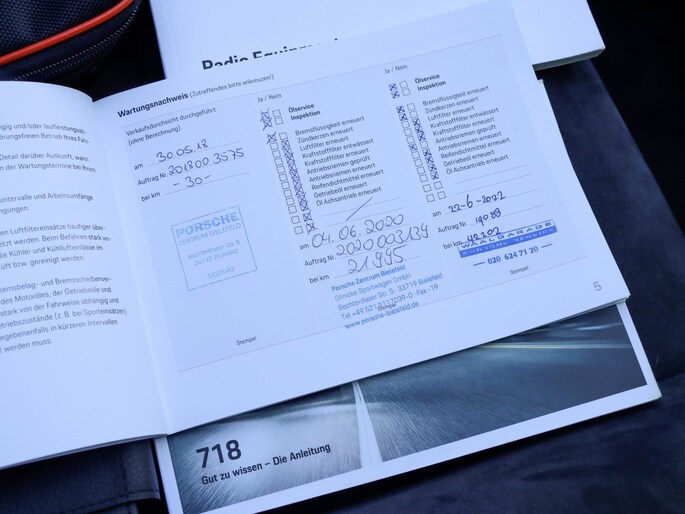 Wartungsnachweis (Zutreffendes bitte ankreuzen)
Verkaufsdurchsicht durchgeführt
(ohne Berechnung)
am 30.05.18
Auftrag Nr. 201800 3575
bei km -30-
PORSCHE
ZENTRUM BIELEFELD
Stempel
Ja / Nein
Ölservice
Inspektion
Bremsflüssigkeit erneuert
Zündkerzen erneuert
Luftfilter erneuert
Kraftstofffilter entwässert
Kraftstofffilter erneuert
Antriebsriemen geprüft
Antriebsriemen erneuert
Reifendichtmittel erneuert
Getriebeöl erneuert
Öl Achsantrieb erneuert
am 04.06.2020
Auftrag Nr. 2020003139
bei km 21.995
Porsche Zentrum Bielefeld
Glinicke Sportwagen GmbH
33719 Bielefeld
www.porsche-bielefeld.de
Stempel
Ja / Nein
Ölservice
Inspektion
Bremsflüssigkeit erneuert
Zündkerzen erneuert
Luftfilter erneuert
Kraftstofffilter entwässert
Kraftstofffilter erneuert
Antriebsriemen geprüft
Antriebsriemen erneuert
Reifendichtmittel erneuert
Getriebeöl erneuert
Öl Achsantrieb erneuert
am 22-6-2022
Auftrag Nr. 19088
bei km 42202
WAALGARAGE
020 624 71 20
Stempel
5
ngig und/oder laufleistungsab-
törungsfreien Betrieb Ihres Fahr-
Detail darüber Auskunft, wann
n der Wartungstermine bei Ihrem
ntervalle und Arbeitsumfänge
ngungen.
en Luftfiltereinsätze häufiger über-
etzt werden. Beim Befahren stark ver-
die Kühler und Kühllufteinlässe im
üft bzw. gereinigt werden.
remsbelag- und Bremsscheibenver-
des Motoröles, der Getriebeöle und
stark von der Fahrweise abhängig und
etriebszustände (z. B. bei Sporteinsätzen)
egebenenfalls in kürzeren Intervallen
t werden muss.
718
Gut zu wissen – Die Anleitung